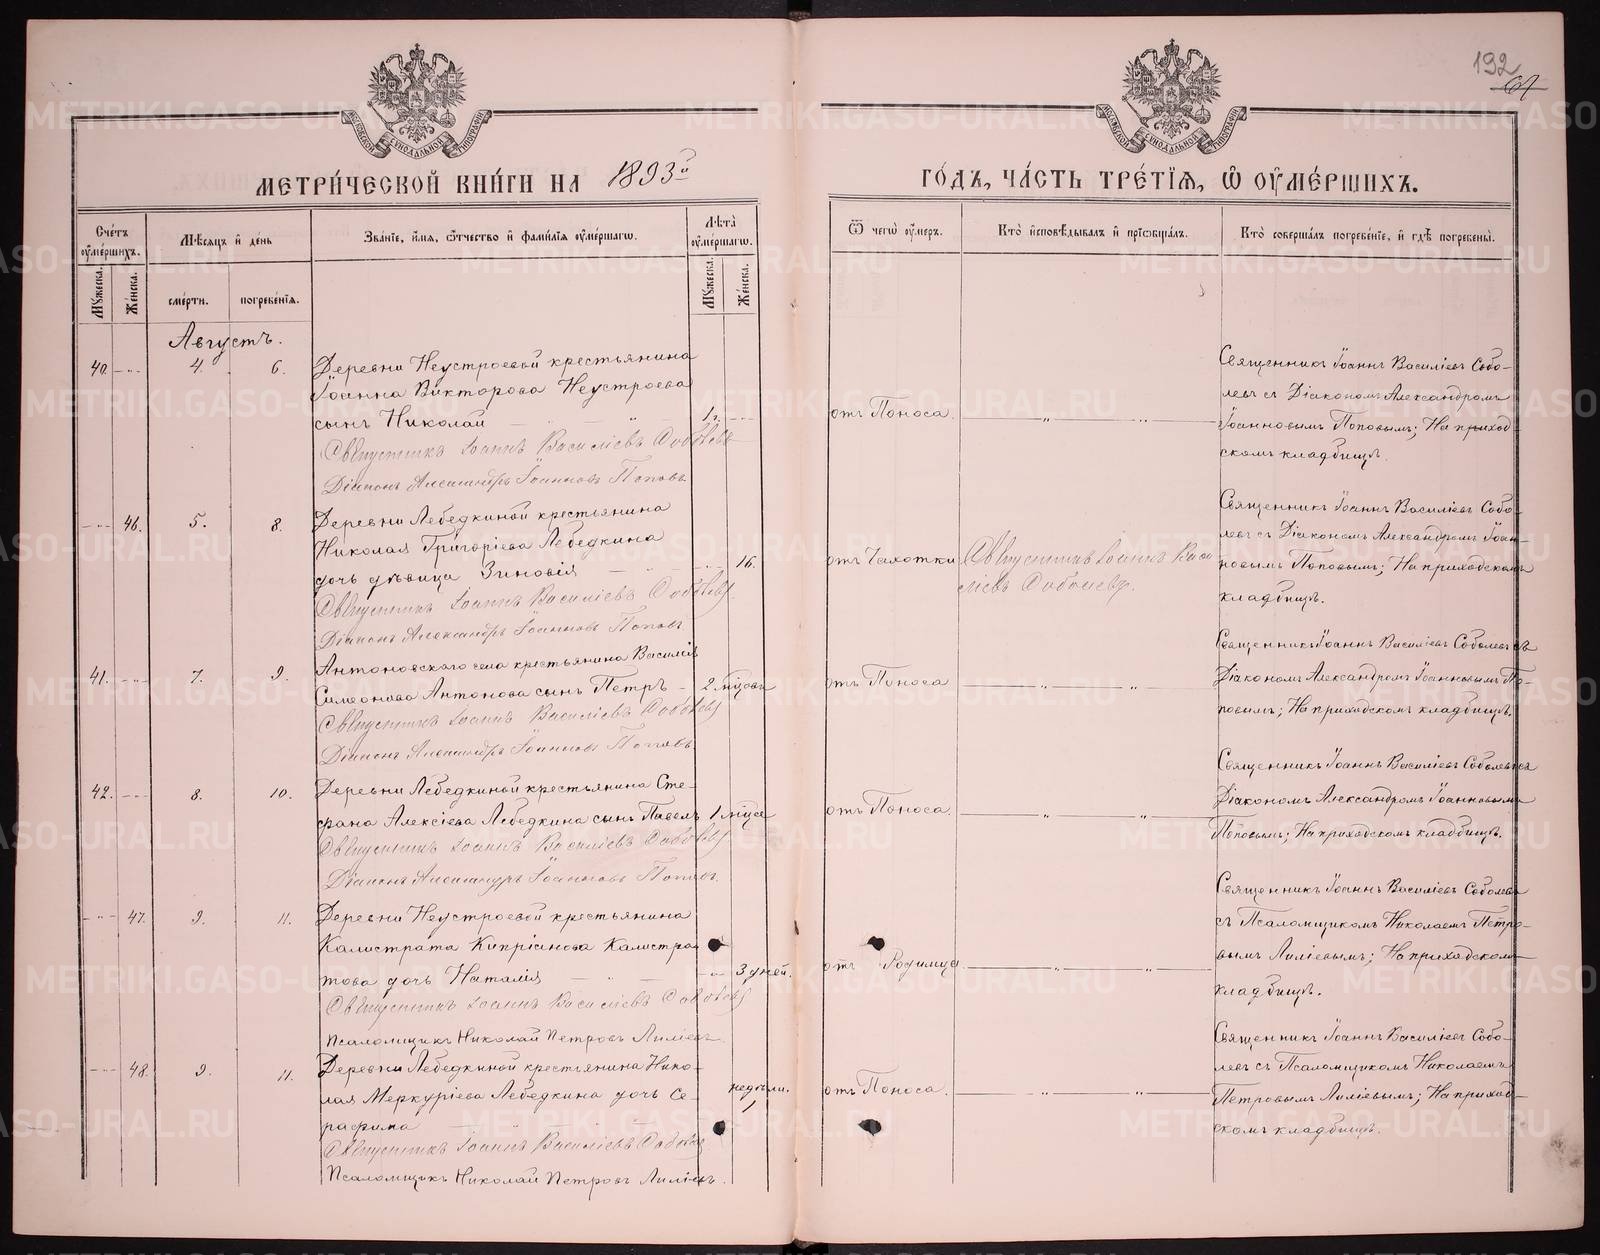 192
61
МЕТРИ́ЧЕСКОЙ КНИ́ГИ НА 1893й
ГО́ДЪ, ЧА́СТЬ ТРЕ́ТЇѦ, Ѡ ОУМЕ́РШИХЪ.
Сче́тъ оуме́ршихъ.
Му́жеска.
Же́нска.
Мѣ́сѧцъ и де́нь
сме́рти.
погребе́нїѧ.
Зва́нїе, и́мѧ, ѻ҆́тчество и фами́лїѧ оуме́ршагѡ.
Лѣ́та оуме́ршагѡ.
Му́жеска.
Же́нска.
Ѿ чегѡ̀ оу́меръ.
Кто̀ исповѣ́дывалъ и прїѡбща́лъ.
Кто̀ соверша́лъ погребе́нїе, и гдѣ̀ погребены̀.
Августъ.
40. 4. 6.
Деревни Неустроевой крестьянина
Іоанна Викторова Неустроева
сынъ Николай 1г.
Священникъ Іоаннъ Василіевъ Соболевъ
Діаконъ Александръ Іоанновъ Поповъ.
отъ Поноса.
Священникъ Іоаннъ Василіевъ Собо-
левъ съ Діакономъ Александромъ
Іоанновымъ Поповымъ; На приход-
скомъ кладбищѣ.
46. 5. 8.
Деревни Лебедкиной крестьянина
Николая Григоріева Лебедкина
дочь дѣвица Зиновія 16.
Священникъ Іоаннъ Василіевъ Соболевъ
Діаконъ Александръ Іоанновъ Поповъ
отъ Чахотки
Священникъ Іоаннъ Васи-
ліевъ Соболевъ.
Священникъ Іоаннъ Василіевъ Собо-
левъ съ Діакономъ Александромъ Іоан-
новымъ Поповымъ; На приходскомъ
кладбищѣ.
41. 7. 9.
Антоновского села крестьянина Василія
Симеонова Антонова сынъ Петръ - 2 мѣсяцовъ
Священникъ Іоаннъ Василіевъ Соболевъ
Діаконъ Александръ Іоанновъ Поповъ.
отъ Поноса
Священникъ Іоаннъ Василіевъ Соболевъ съ
Діакономъ Александромъ Іоанновымъ По-
повымъ; На приходскомъ кладбищѣ.
42. 8. 10.
Деревни Лебедкиной крестьянина Сте-
фана Алексіева Лебедкина сынъ Павелъ 1 мѣсяца
Священникъ Іоаннъ Василіевъ Соболевъ
Діаконъ Александръ Іоанновъ Поповъ.
отъ Поноса.
Священникъ Іоаннъ Василіевъ Соболевъ съ
Діакономъ Александромъ Іоанновымъ
Поповымъ; На приходскомъ кладбищѣ.
47. 9. 11.
Деревни Неустроевой крестьянина
Калистрата Кипріанова Калистра-
това дочь Наталія 3 дней.
Священникъ Іоаннъ Василіевъ Соболевъ
Псаломщикъ Николай Петровъ Лиліевъ.
отъ Родимца
Священникъ Іоаннъ Василіевъ Соболевъ
съ Псаломщикомъ Николаемъ Петро-
вымъ Лиліевымъ; На приходскомъ
кладбищѣ.
48. 9. 11.
Деревни Лебедкиной крестьянина Нико-
лая Меркуріева Лебедкина дочь Се-
рафима недѣли. 1
Священникъ Іоаннъ Василіевъ Соболевъ
Псаломщикъ Николай Петровъ Лиліевъ.
отъ Поноса.
Священникъ Іоаннъ Василіевъ Собо-
левъ съ Псаломщикомъ Николаемъ
Петровымъ Лиліевымъ; На приход-
скомъ кладбищѣ.
METRIKI.GASO-URAL.RU